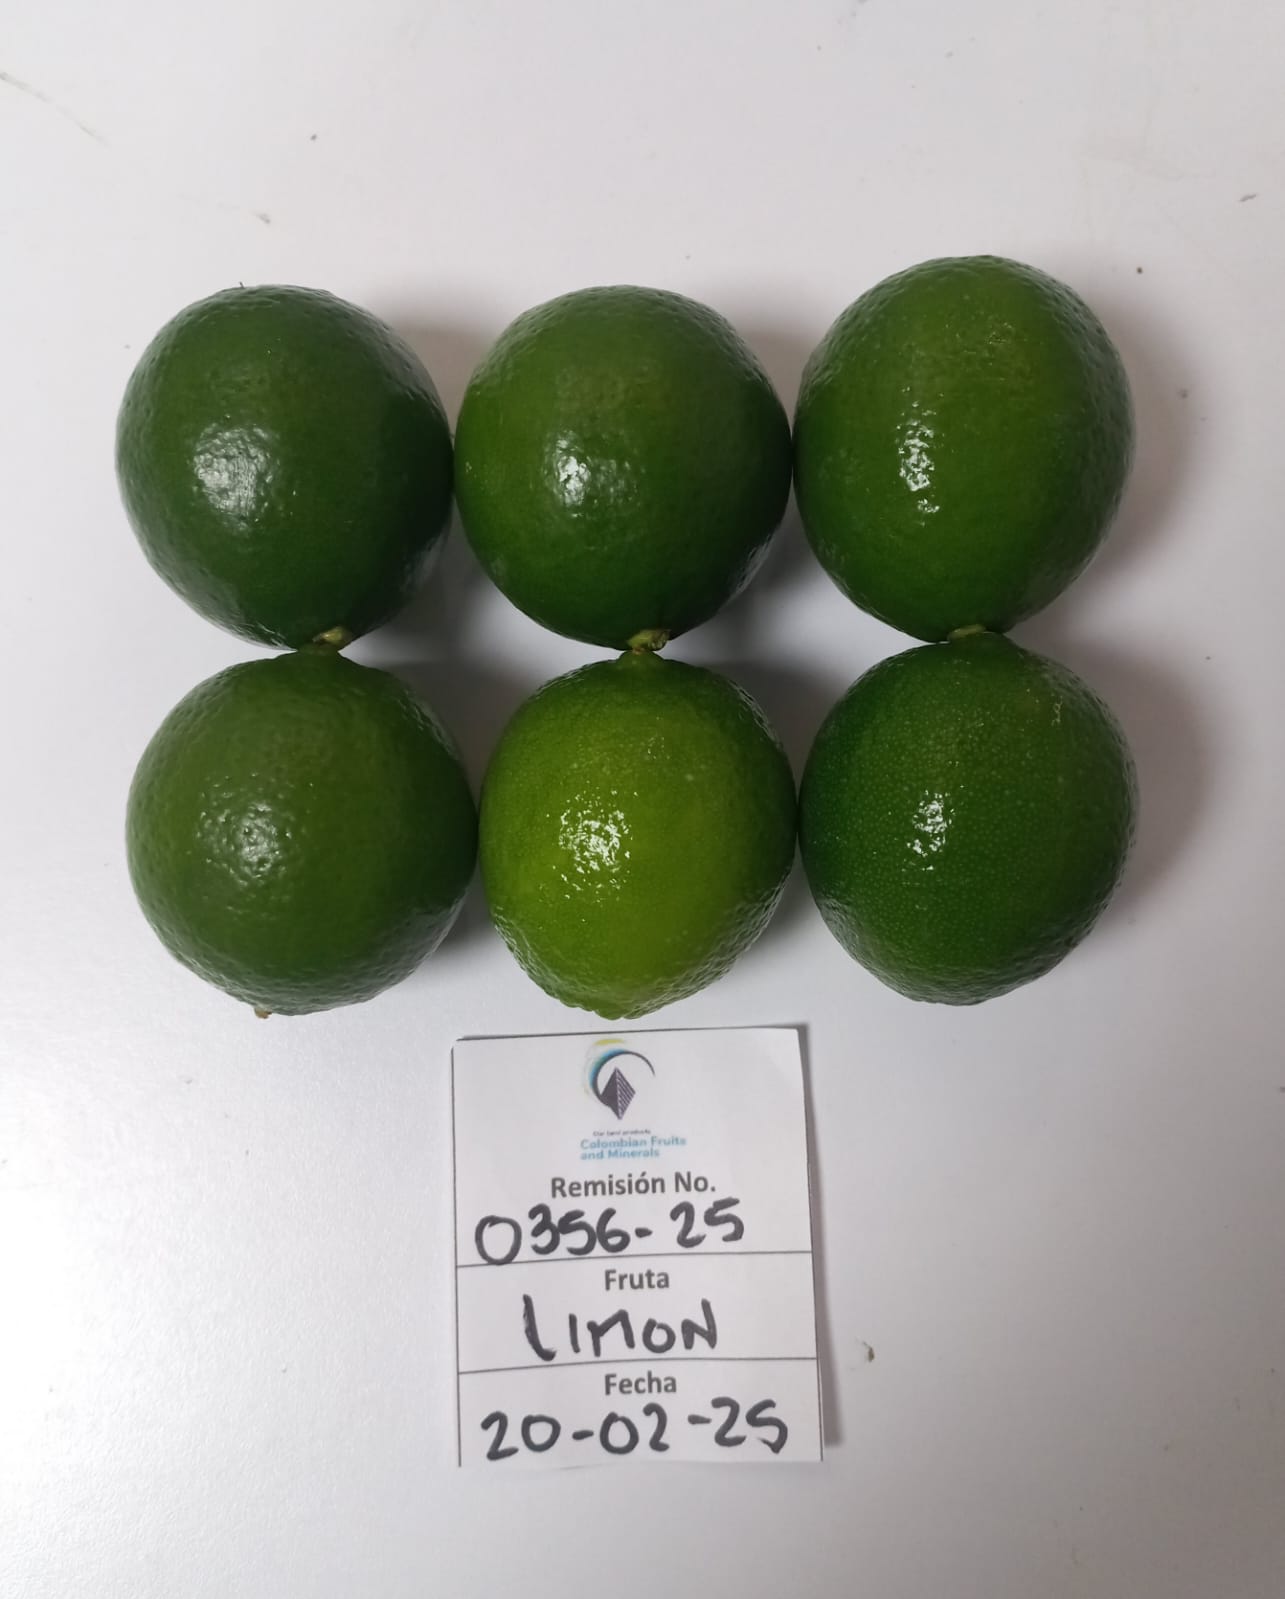 Our land products
Colombian Fruits
and Minerals
Remisión No.
0356-25
Fruta
LIMON
Fecha
20-02-25